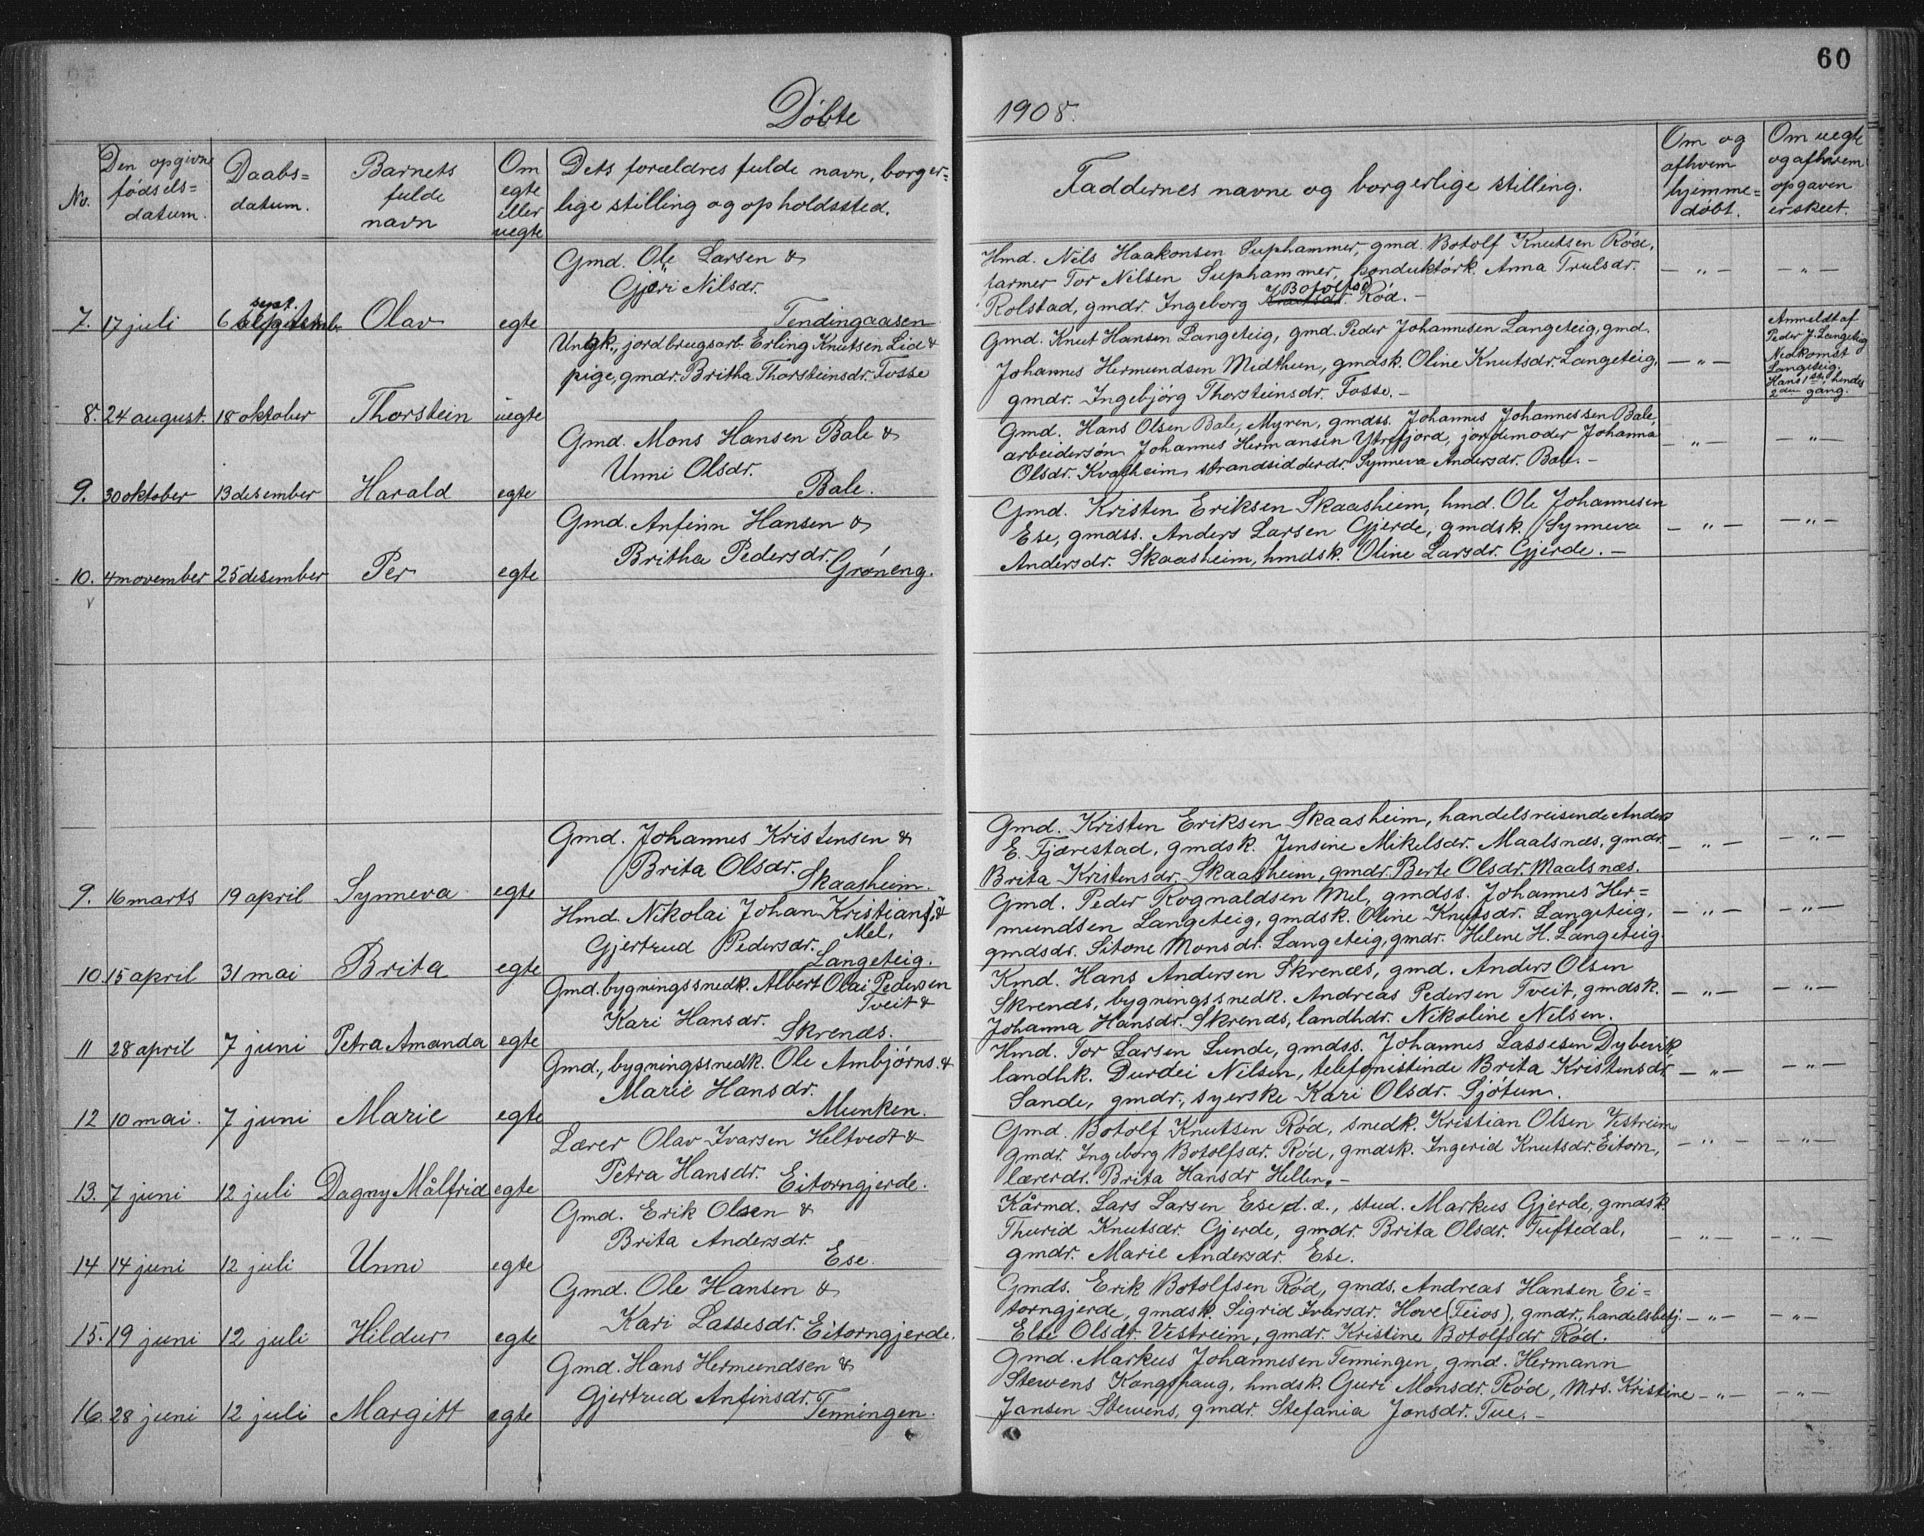 60
Döbte 1908.
No.
Den opgivne
fødsels=
datum.
Daabs=
datum.
Barnets
fulde
navn
Om
egte
eller
uegte
Dets forældres fulde navn, borger=
lige stilling og opholdssted.
Faddernes navne og borgerlige stilling.
Om og
afhvem
hjemme=
døbt.
Om uegte
og afhvem
opgaven
er skeet.
7. 17 juli 6 sept. Olav egte
Gmd. Ole Larsen &
Gjøri Nilsdr.
Tendingaasen
Hmd. Nils Haakonsen Suphammer, gmd. Botolf Knutsen Röd,
farmer Tor Nilsen Suphammer, konduktörk. Anna Trulsdr.
Rolstad, gmdr. Ingeborg Botolfsd. Röd. –
— „ — — „ —
8. 24 august. 18 oktober Thorstein uegte
Ungk., jordbrugsarb. Erling Knutsen Lid &
pige, gmdr. Britha Thorsteinsdr. Fosse
Gmd. Knut Hansen Langeteig, gmd. Peder Johannesen Langeteig, gmd.
Johannes Hermundsen Midthun, gmdsk. Oline Knutsdr. Langeteig,
gmdr. Ingebjörg Thorsteinsdr. Fosse. –
— „ —
Anmeldt af
Peder J. Langeteig
Nedkomst
Langeteig.
Hans 1ste, hendes
2den gang.
9. 30 oktober 13 desember Harald egte
Gmd. Mons Hansen Bale &
Unni Olsdr.
Bale.
Gmd. Hans Olsen Bale, Myren, gmdss. Johannes Johannessen Bale,
arbeidersön Johannes Hermansen Ytrefjord, jordemoder Johanna
Olsdr. Kvalheim, strandsidderdr. Synneva Andersdr. Bale. –
— „ — — „ —
10. 4 november 25 desember Per egte
Gmd. Anfinn Hansen &
Britha Pedersdr.
Gröneng.
Gmd. Kristen Eriksen Skaasheim, hmd. Ole Johannesen
Ese, gmdss. Anders Larsen Gjerde, gmdsk. Synneva
Andersdr. Skaasheim, hmdsk. Oline Larsdr. Gjerde. –
— „ — — „ —
9. 16 marts 19 april Synneva egte
Gmd. Johannes Kristensen &
Brita Olsdr.
Skaasheim.
Gmd. Kristen Eriksen Skaasheim, handelsreisende Anders
E. Tjærestad, gmdsk. Jensine Mikelsdr. Maalsnæs, gmdr.
Brita Kristensdr. Skaasheim, gmdr. Berte Olsdr. Maalsnæs.
— „ — — „ —
10. 15 april 31 mai Brita egte
Hmd. Nikolai Johan Kristians. &
Gjertrud Pedersdr. Mel,
Langeteig.
Gmd. Peder Rognaldsen Mel, gmdss. Johannes Her=
mundsen Langeteig, gmdsk. Oline Knutsdr. Langeteig,
gmdsdr. Sitone Monsdr. Langeteig, gmdr. Helene H. Langeteig.
— „ — — „ —
11 28 april 7 juni Petra Amanda egte
Gmd. bygningssnedk. Albert Olai Pedersen
Tveit &
Kari Hansdr.
Skrenæs.
Kmd. Hans Andersen Skrenæs, gmd. Anders Olsen
Skrenæs, bygningssnedk. Andreas Pedersen Tveit, gmdsk.
Johanna Hansdr. Skrenæs, landhdr. Nikoline Nilsen.
— „ — — „ —
12 10 mai. 7 juni Marie egte
Gmd., bygningssnedk. Ole Ambjörns. &
Marie Hansdr.
Munken.
Hmd. Tor Larsen Sunde, gmdss. Johannes Lassesen Dybevik,
landhk. Durdei Nilsen, telefonistinde Brita Kristensdr.
Sande, gmdr., syerske Kari Olsdr. Sjötun.
— „ — — „ —
13. 7 juni 12 juli Dagny Målfrid egte
Lærer Olav Ivarsen Heltvedt &
Petra Hansdr.
Eitorngjerde.
Gmd. Botolf Knutsen Röd, snedk. Kristian Olsen Vestreim
gmdr. Ingeborg Botolfsdr. Röd, gmdsk. Ingerid Knutsdr. Eitorn,
lærerdr. Brita Hansdr. Hellen. –
— „ — — „ —
14 14 juni 12 juli Unni egte
Gmd. Erik Olsen &
Brita Andersdr.
Ese.
Kårmd. Lars Larsen Ese d.æ., stud. Markus Gjerde, gmdsk.
Thurid Knutsdr. Gjerde, gmdr. Brita Olsdr. Tuftedal,
gmdr. Marie Andersdr. Ese.
— „ — — „ —
15. 19 juni 12 juli Hildur egte
Gmd. Ole Hansen &
Kari Lassesdr. Eitorngjerde.
Gmds. Erik Botolfsen Röd, gmds. Andreas Hansen Ei=
torngjerde, gmdsk. Sigrid Ivarsdr. Hove (Feios), gmdr., handelsbetj.
Else Olsdr. Vestreim, gmdr. Kristine Botolfsdr. Röd.
— „ — — „ —
16. 28 juni 12 juli Margitt egte
Gmd. Hans Hermundsen &
Gjertrud Anfinsdr. Tenningen.
Gmd. Markus Johannesen Tenningen, gmd. Hermann
Stewens Kongshaug, hmdsk. Guri Monsdr. Röd, Mrs. Kristine
Jansen Stewens, gmdr. Stefania Jonsdr. Tue. –
— „ — — „ —